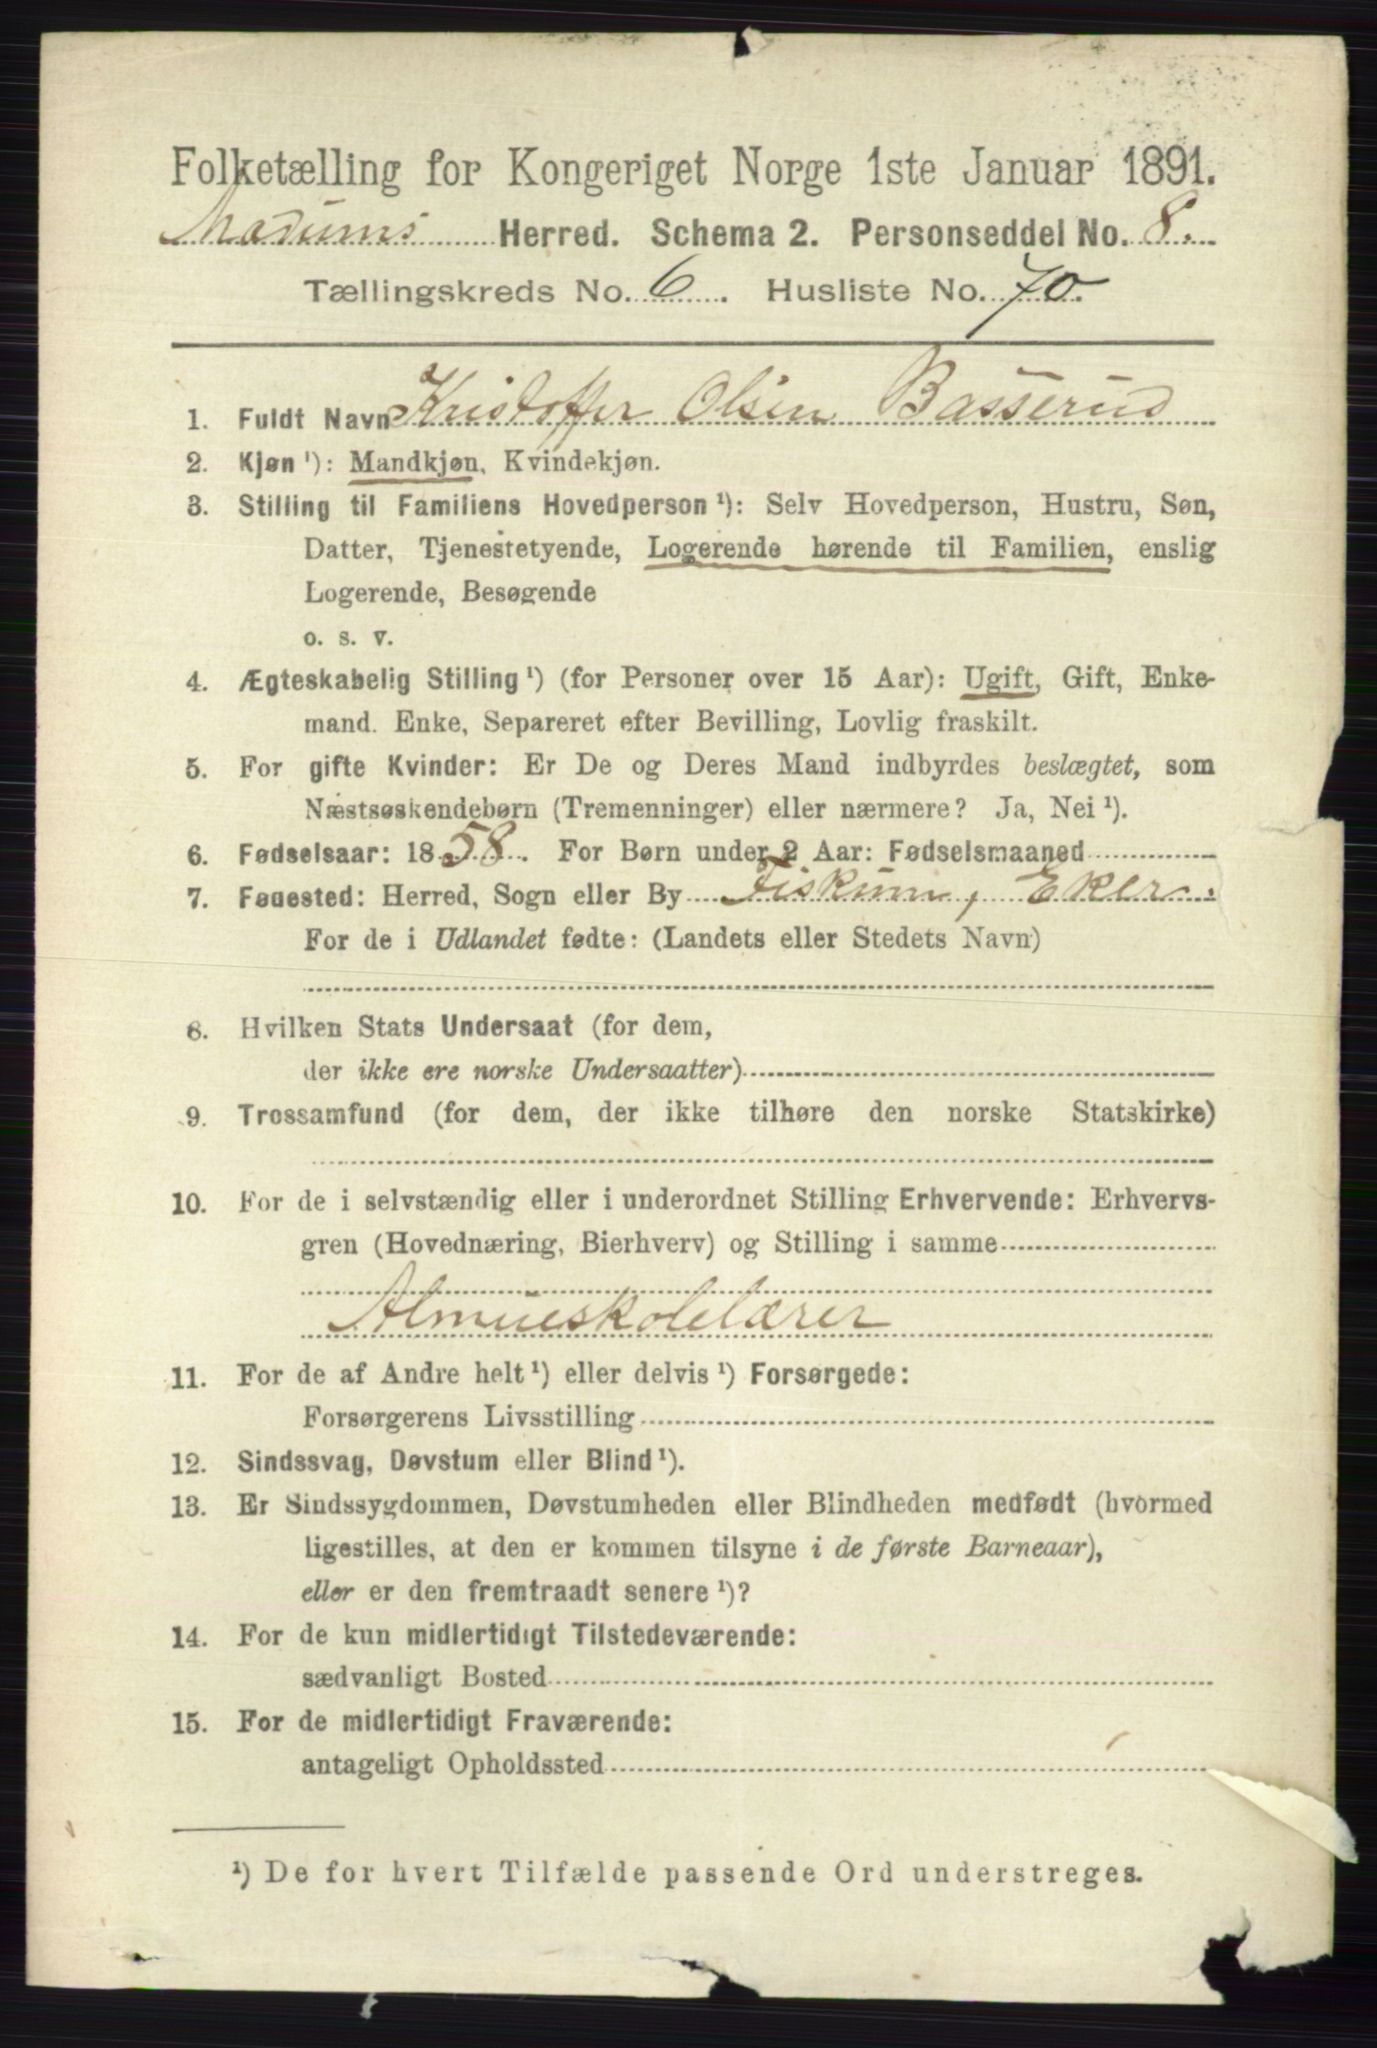 Folketælling for Kongeriget Norge 1ste Januar 1891.
Modums Herred. Schema 2. Personseddel No. 8.
Tællingskreds No. 6. Husliste No. 70.
1. Fuldt Navn Kristoffer Olsen Basserud
2. Kjøn ¹): Mandkjøn, Kvindekjøn.
3. Stilling til Familiens Hovedperson ¹): Selv Hovedperson, Hustru, Søn,
Datter, Tjenestetyende, Logerende hørende til Familien, enslig
Logerende, Besøgende
o. s. v.
4. Ægteskabelig Stilling ¹) (for Personer over 15 Aar): Ugift, Gift, Enke-
mand. Enke, Separeret efter Bevilling, Lovlig fraskilt.
5. For gifte Kvinder: Er De og Deres Mand indbyrdes beslægtet, som
Næstsøskendebørn (Tremenninger) eller nærmere? Ja, Nei ¹).
6. Fødselsaar: 1858. For Børn under 2 Aar: Fødselsmaaned
7. Fødested: Herred, Sogn eller By Fiskum, Eker.
For de i Udlandet fødte: (Landets eller Stedets Navn)
8. Hvilken Stats Undersaat (for dem,
der ikke ere norske Undersaatter)
9. Trossamfund (for dem, der ikke tilhøre den norske Statskirke)
10. For de i selvstændig eller i underordnet Stilling Erhvervende: Erhvervs-
gren (Hovednæring, Bierhverv) og Stilling i samme
Almueskolelærer
11. For de af Andre helt ¹) eller delvis ¹) Forsørgede:
Forsørgerens Livsstilling
12. Sindssvag, Døvstum eller Blind ¹).
13. Er Sindssygdommen, Døvstumheden eller Blindheden medfødt (hvormed
ligestilles, at den er kommen tilsyne i de første Barneaar),
eller er den fremtraadt senere ¹)?
14. For de kun midlertidigt Tilstedeværende:
sædvanligt Bosted
15. For de midlertidigt Fraværende:
antageligt Opholdssted
¹) De for hvert Tilfælde passende Ord understreges.